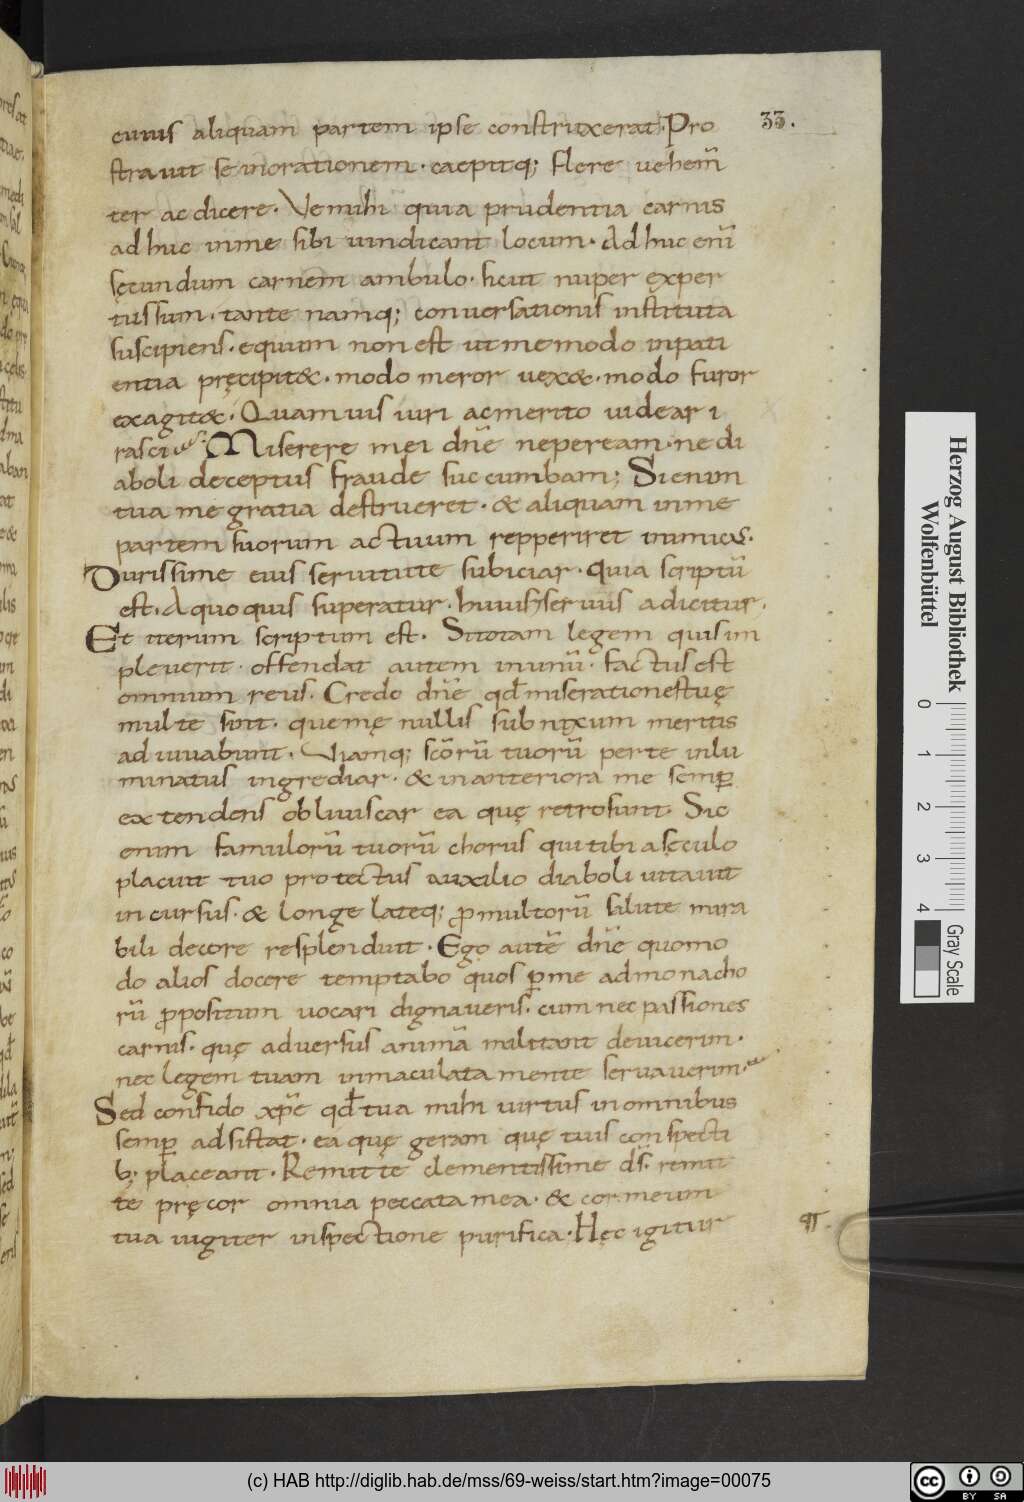 33.
cuius aliquam partem ipse construxerat. Pro
strauit se inorationem. caepitq; flere uehem̄
ter ac dicere. Ve mihi quia prudentia carnis
ad huc inme sibi uindicant locum. Ad huc eni̅
sęcundum carnem ambulo. sicut nuper exper
tus sum. tante namq; conuersationis instituta
suscipiens. equum non est ut me modo inpati
entia pręcipit&. modo meror uex&. modo furor
exagit&. Quam uis iuri ac merito uidear i
rasci. Miserere mei dn̄e nepeream. ne di
aboli deceptus fraude succumbam; Si enim
tua me gratia destrueret. & aliquam inme
partem suorum actuum repperiret inimicus.
Durissime eius seruitute subiciar. quia scriptū
est. A quo quis superatur. huius & seruus adicitur.
Et iterum scriptum est. Si totam legem quis im
pleuerit. offendat autem inunū. factus est
omnium reus. Credo dn̄e qđ miserationes tuę
multe sunt. que mę nullis subnixum meritis
ad iuuabunt. Viamq; sc̄orū tuorū per te inlu
minatus ingrediar. & in anteriora me semp̱
extendens obliuiscar ea quę retro sunt. Sic
enim famulorū tuorū chorus qui tibi a sęculo
placuit tuo protectus auxilio diaboli uitauit
in cursus. & longe lateq; ꝓ multorū salute mira
bili decore resplenduit. Ego autē dn̄e quomo
do alios docere temptabo quos ꝑ me ad monacho
rū ꝓpositum uocari dignaueris. cum nec passiones
carnis. quę aduersus animā militant deuicerim.
nec legem tuam inmaculata mente seruauerim.
Sed confido xp̄e qđ tua mihi uirtus in omnibus
semꝑ adsistat. ea quę geram quę tuis conspecti
b; placeant. Remitte clementissime d̄s. remit
te pręcor omnia peccata mea. & cor meum
tua iugiter inspectione purifica. Hęc igitur
Herzog August Bibliothek
Wolfenbüttel
0 1 2 3 4
Gray Scale
(c) HAB http://diglib.hab.de/mss/69-weiss/start.htm?image=00075
cc BY SA